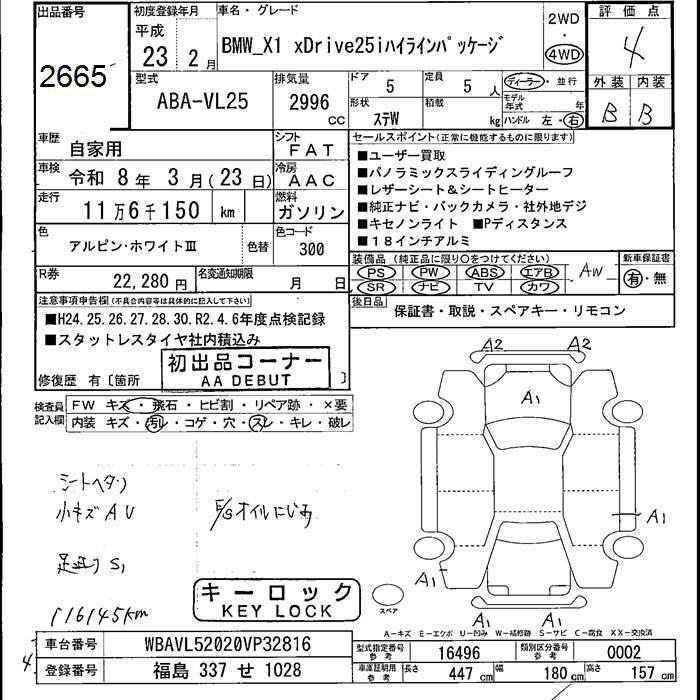 出品番号
2665
初度登録年月
平成
23年 2月
車名・グレード
BMW_X1 xDrive25iハイラインパッケージ
2WD
・
4WD
評価点
4
外装 内装
B B
型式
ABA-VL25
排気量
2996
CC
ドア
5
定員
5 人
形状
ステW
積載
kg
ディーラー・並行
モデル年式 年
ハンドル 左・右
車歴
自家用
シフト
FAT
車検
令和 8年 3月(23日)
冷房
AAC
走行
11万6千150 km
燃料
ガソリン
色
アルピン・ホワイトⅢ
色替
色コード
300
R券
22,280円
名変通知期限
月 日
セールスポイント(正常に機能するものに限ります)
■ユーザー買取
■パノラミックスライディングルーフ
■レザーシート&シートヒーター
■純正ナビ・バックカメラ・社外地デジ
■キセノンライト ■Pディスタンス
■18インチアルミ
装備品 (純正品に限り○をつけてください)
PS PW ABS エアB AW
SR ナビ TV カワ
新車保証書
有・無
後日品
保証書・取説・スペアキー・リモコン
注意事項申告欄(不具合内容等は具体的に記入して下さい)
■H24.25.26.27.28.30.R2.4.6年度点検記録
■スタットレスタイヤ社内積込み
初出品コーナー
AA DEBUT
修復歴 有〔箇所 〕
検査員記入欄
FW キズ・飛石・ヒビ割・リペア跡・×要
内装 キズ・汚レ・コゲ・穴・スレ・キレ・破レ
シートヘタリ
小キズ A U
E/Gオイルにじみ
足廻り S1
116145km
A2 A2
A1
A1
A1
A1
キーロック
KEY LOCK
スペア
A-キズ E-エクボ U-凹み W-補修跡 S-サビ C-腐食 XX-交換済
車台番号
WBAVL52020VP32816
型式指定番号 参考
16496
類別区分番号 参考
0002
4
登録番号
福島 337 せ 1028
車庫証明用 参考
長さ 447 cm
幅 180 cm
高さ 157 cm